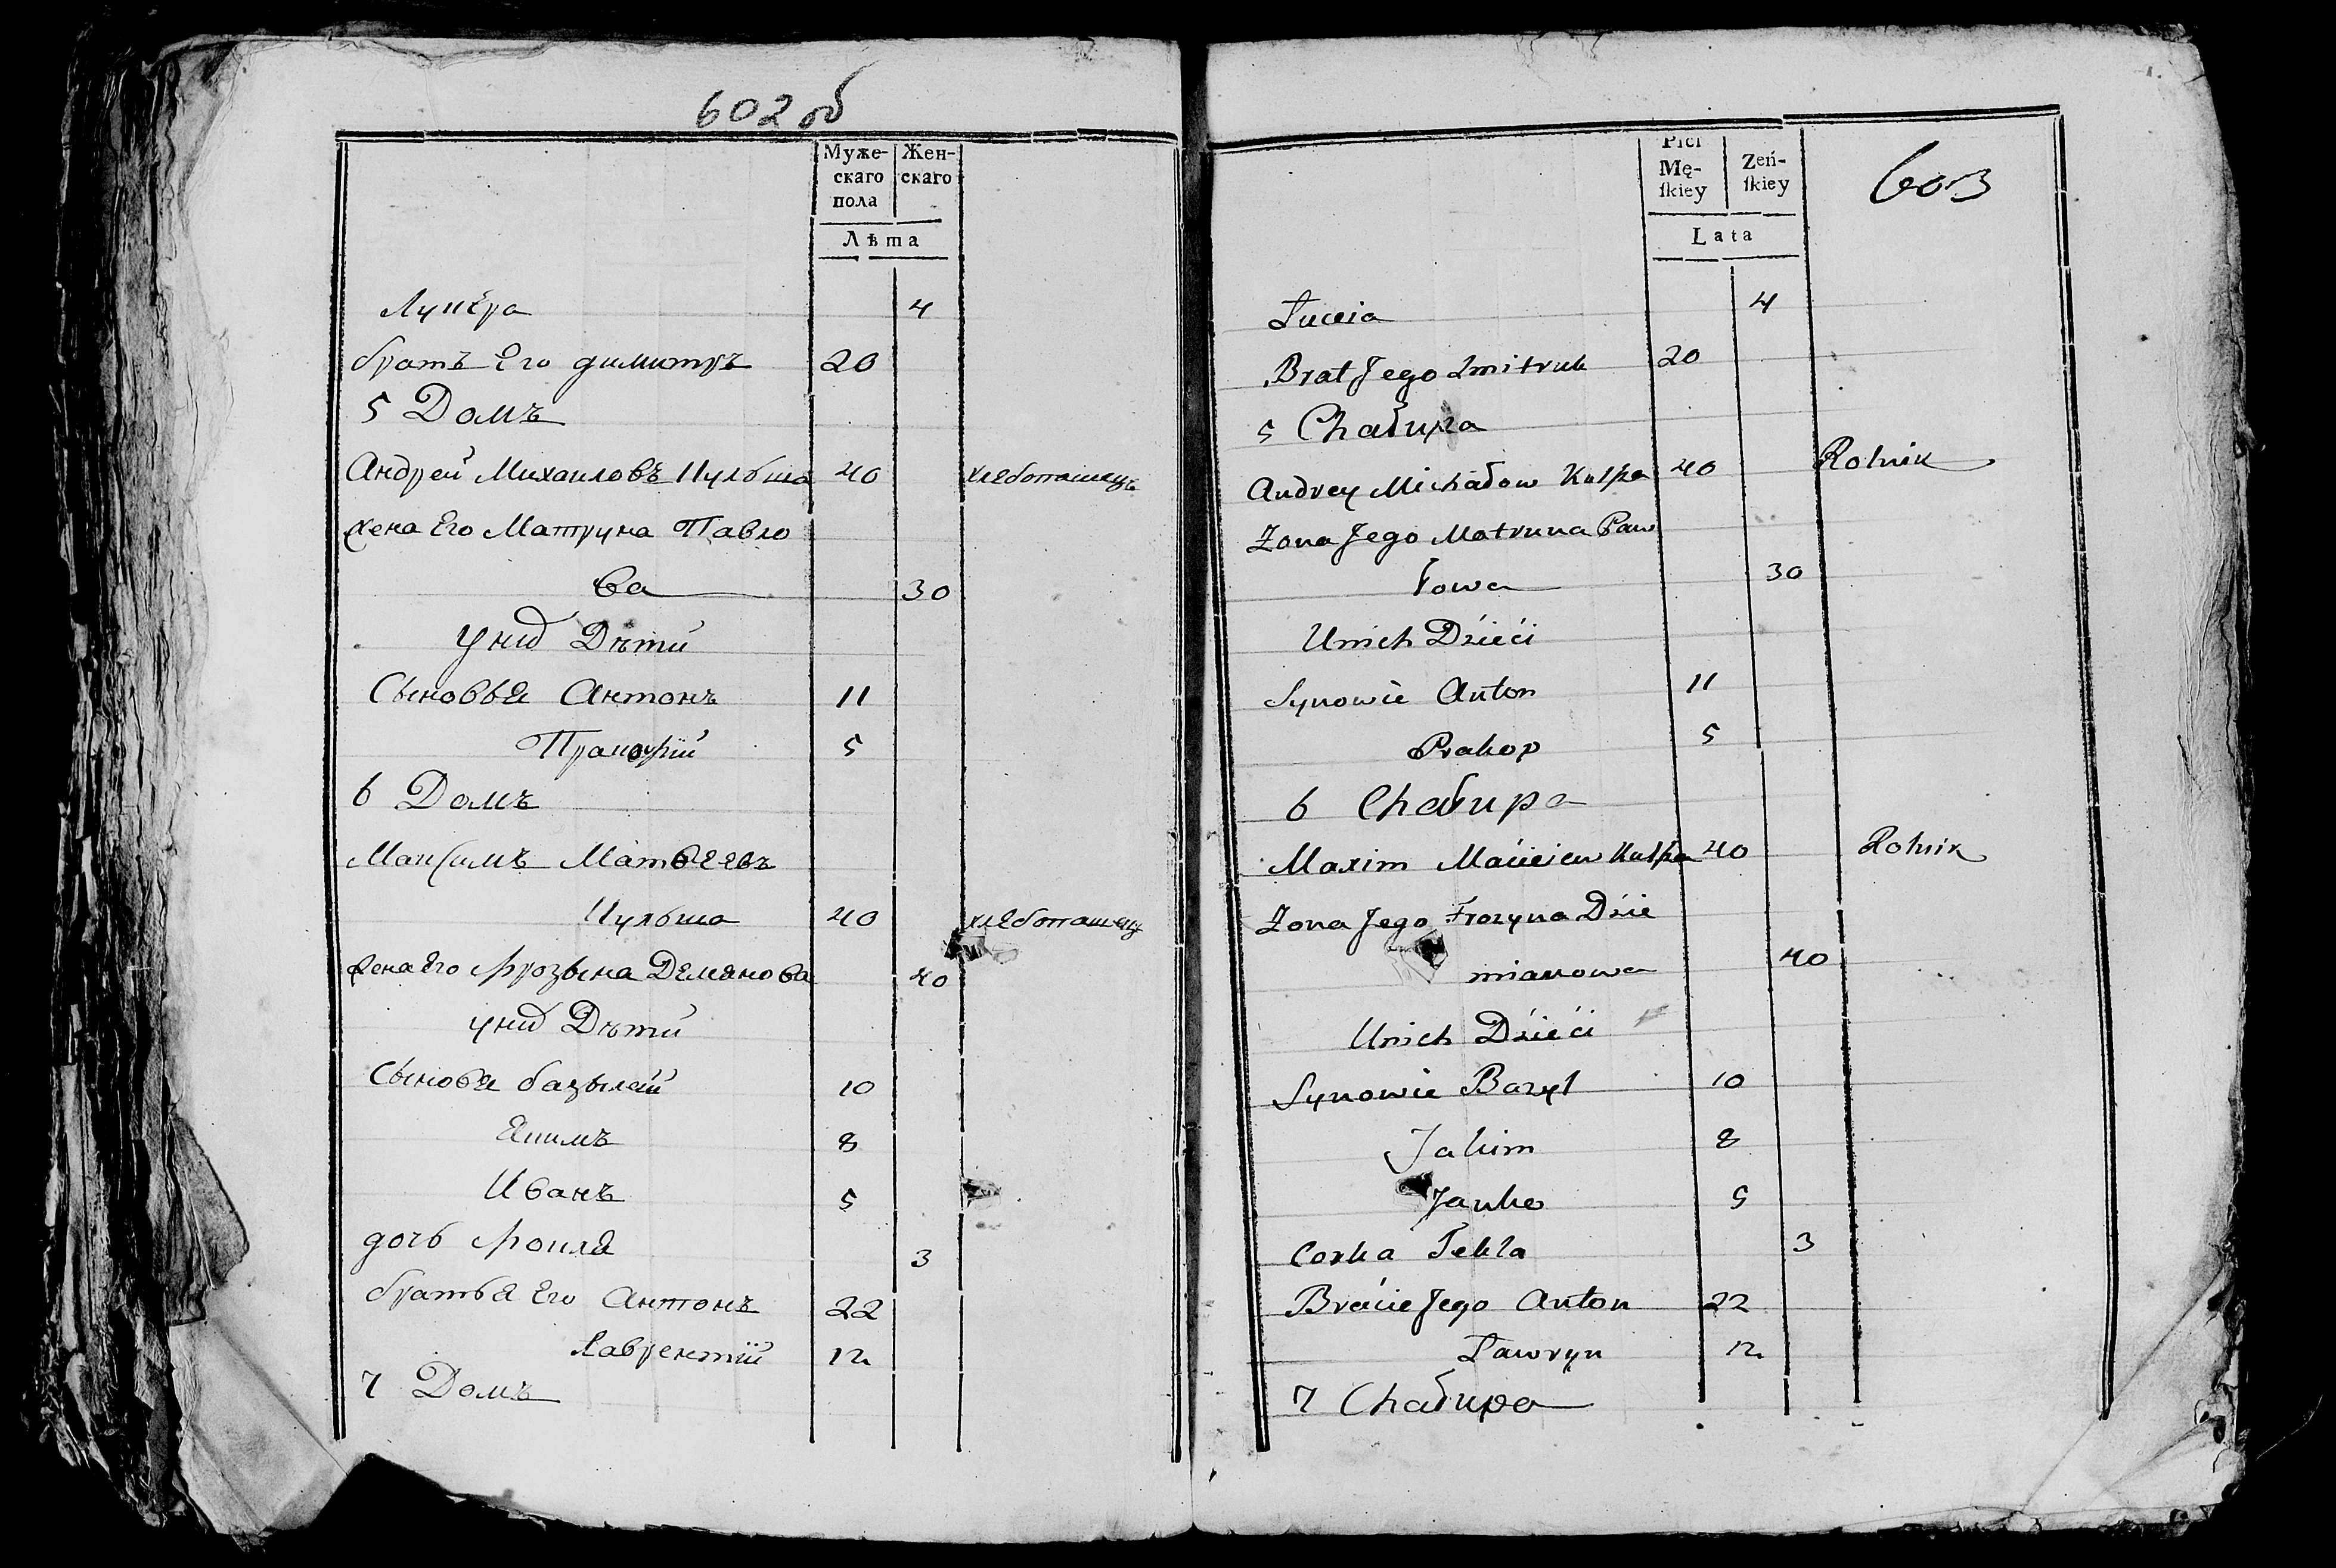 602 об
Муже-
скаго
пола
Жен-
скаго
Лѣта
Луцѣя 4
братъ Его димитръ 20
5 Домъ
Андрей Михаиловъ Кульпа 40 хлебопашецъ
жена Его Матруна Павло
ва 30
у нихъ Дѣти
Сыновья Антонъ 11
Пракофій 5
6 Домъ
Максимъ Матвеевъ
Кульпа 40 хлебопашец
жена Его Фрозына Демянова 40
у нихъ Дѣти
Сыновя базылей 10
Якимъ 8
Иванъ 5
дочь Фокля 3
братья Его Антонъ 22
Лаврентій 12
7 Домъ
Płci
Mę-
ſkiey
Zeń-
ſkiey
Lata
603
Łuceia 4
Brat Jego Zmitruk 20
5 Chałupa
Andrey Michałow Kulpa 40 Rolnik
Zona Jego Matruna Paw
łowa 30
U nich Dzieći
Synowie Anton 11
Prakop 5
6 Chałupa
Maxim Maćieiew Kulpa 40 Rolnik
Zona Jego Frozyna Dzie
mianowa 40
U nich Dzieći
Synowie Bazyl 10
Jakim 8
Janko 5
Corka Tekla 3
Braćie Jego Anton 22
Ławryn 12
7 Chałupa